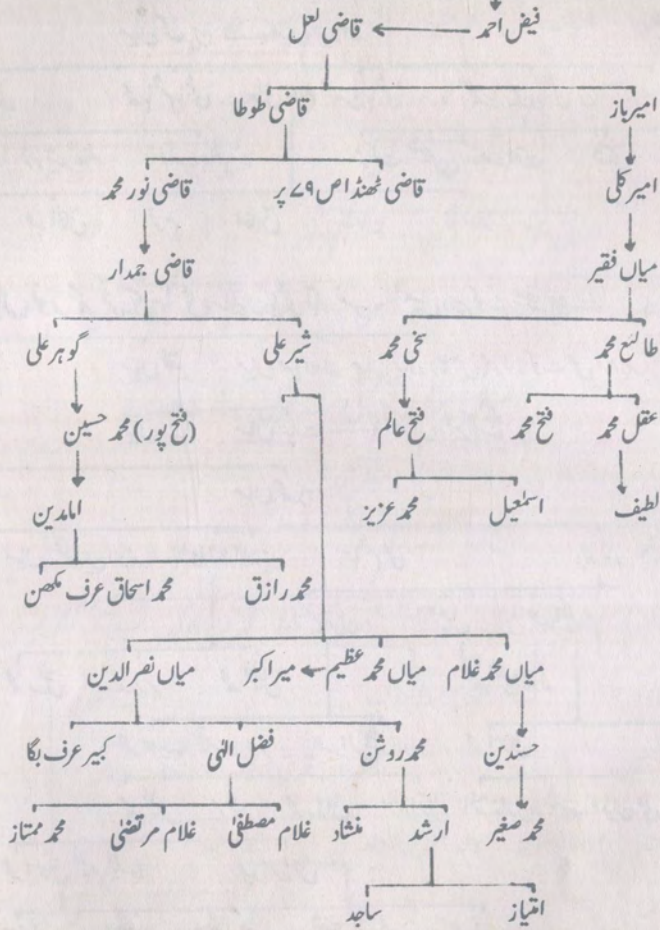 فیض احمد ← قاضی لعل
امیر باز قاضی طوطا
امیر کلی قاضی ٹھنڈا ص ۷۹ پر قاضی نور محمد
میاں فقیر قاضی جمدار
طالع محمد سخی محمد شیر علی گوہر علی
عقل محمد فتح محمد فتح عالم (فتح پور) محمد حسین
لطیف اسمٰعیل محمد عزیز امامدین
محمد رازق محمد اسحاق عرف مکھن
میاں محمد غلام میاں محمد عظیم ← میرا کبر میاں نصر الدین
حسندین محمد روشن فضل الٰہی کبیر عرف بگا
محمد صغیر ارشد منشاد غلام مصطفیٰ غلام مرتضیٰ محمد ممتاز
امتیاز ساجد